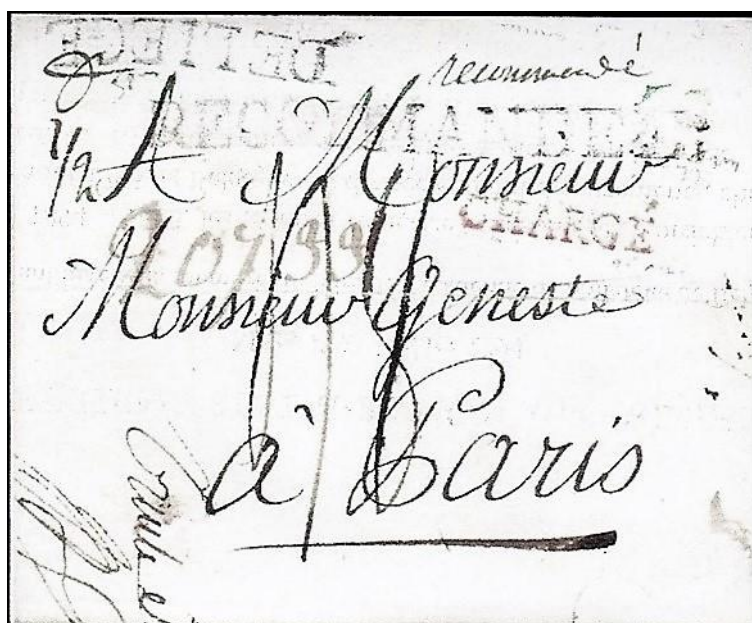 DE LIEGE
recommandé
RECOMMANDIRT
1/2 A Monsieur
CHARGÉ
Monsieur Geneste
à Paris